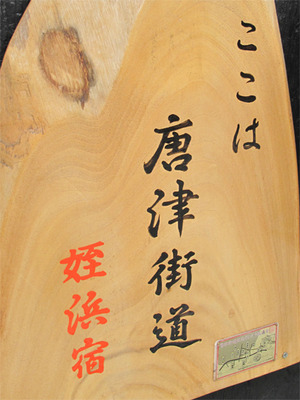 ここは
唐津街道
姪浜宿